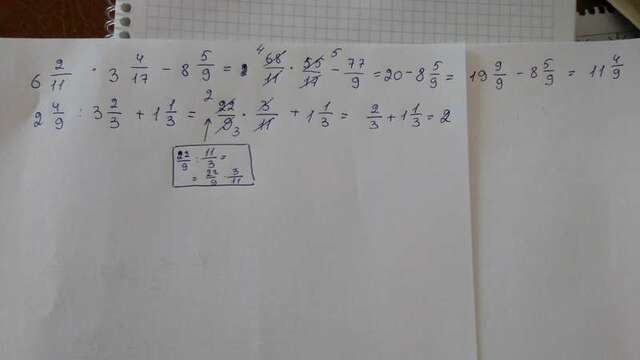 6 2/11 · 3 4/17 - 8 5/9 = 4 68/11 · 55/17 5 - 77/9 = 20 - 8 5/9 = 19 9/9 - 8 5/9 = 11 4/9
2 4/9 : 3 2/3 + 1 1/3 = 2 22/9 3 · 3/11 + 1 1/3 = 2/3 + 1 1/3 = 2
22/9 : 11/3 =
= 22/9 · 3/11